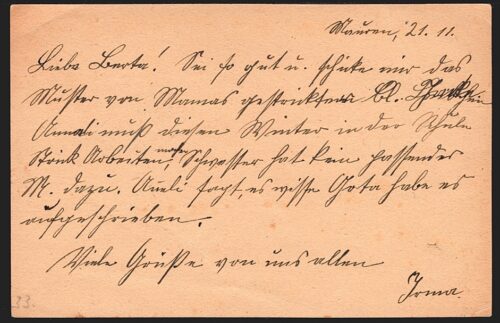 Mauren, 21. 11.
Liebe Berta! Sei so gut u. schicke mir das
Muster von Mamas gestrickten bl.
Anneli muß diesen Winter in der Schule
Strick Arbeiten machen, Schwester hat kein passendes
M. dazu. Aneli sagt, es wisse Gota habe es
aufgeschrieben.
Viele Grüße von uns allen
Irma.
33.